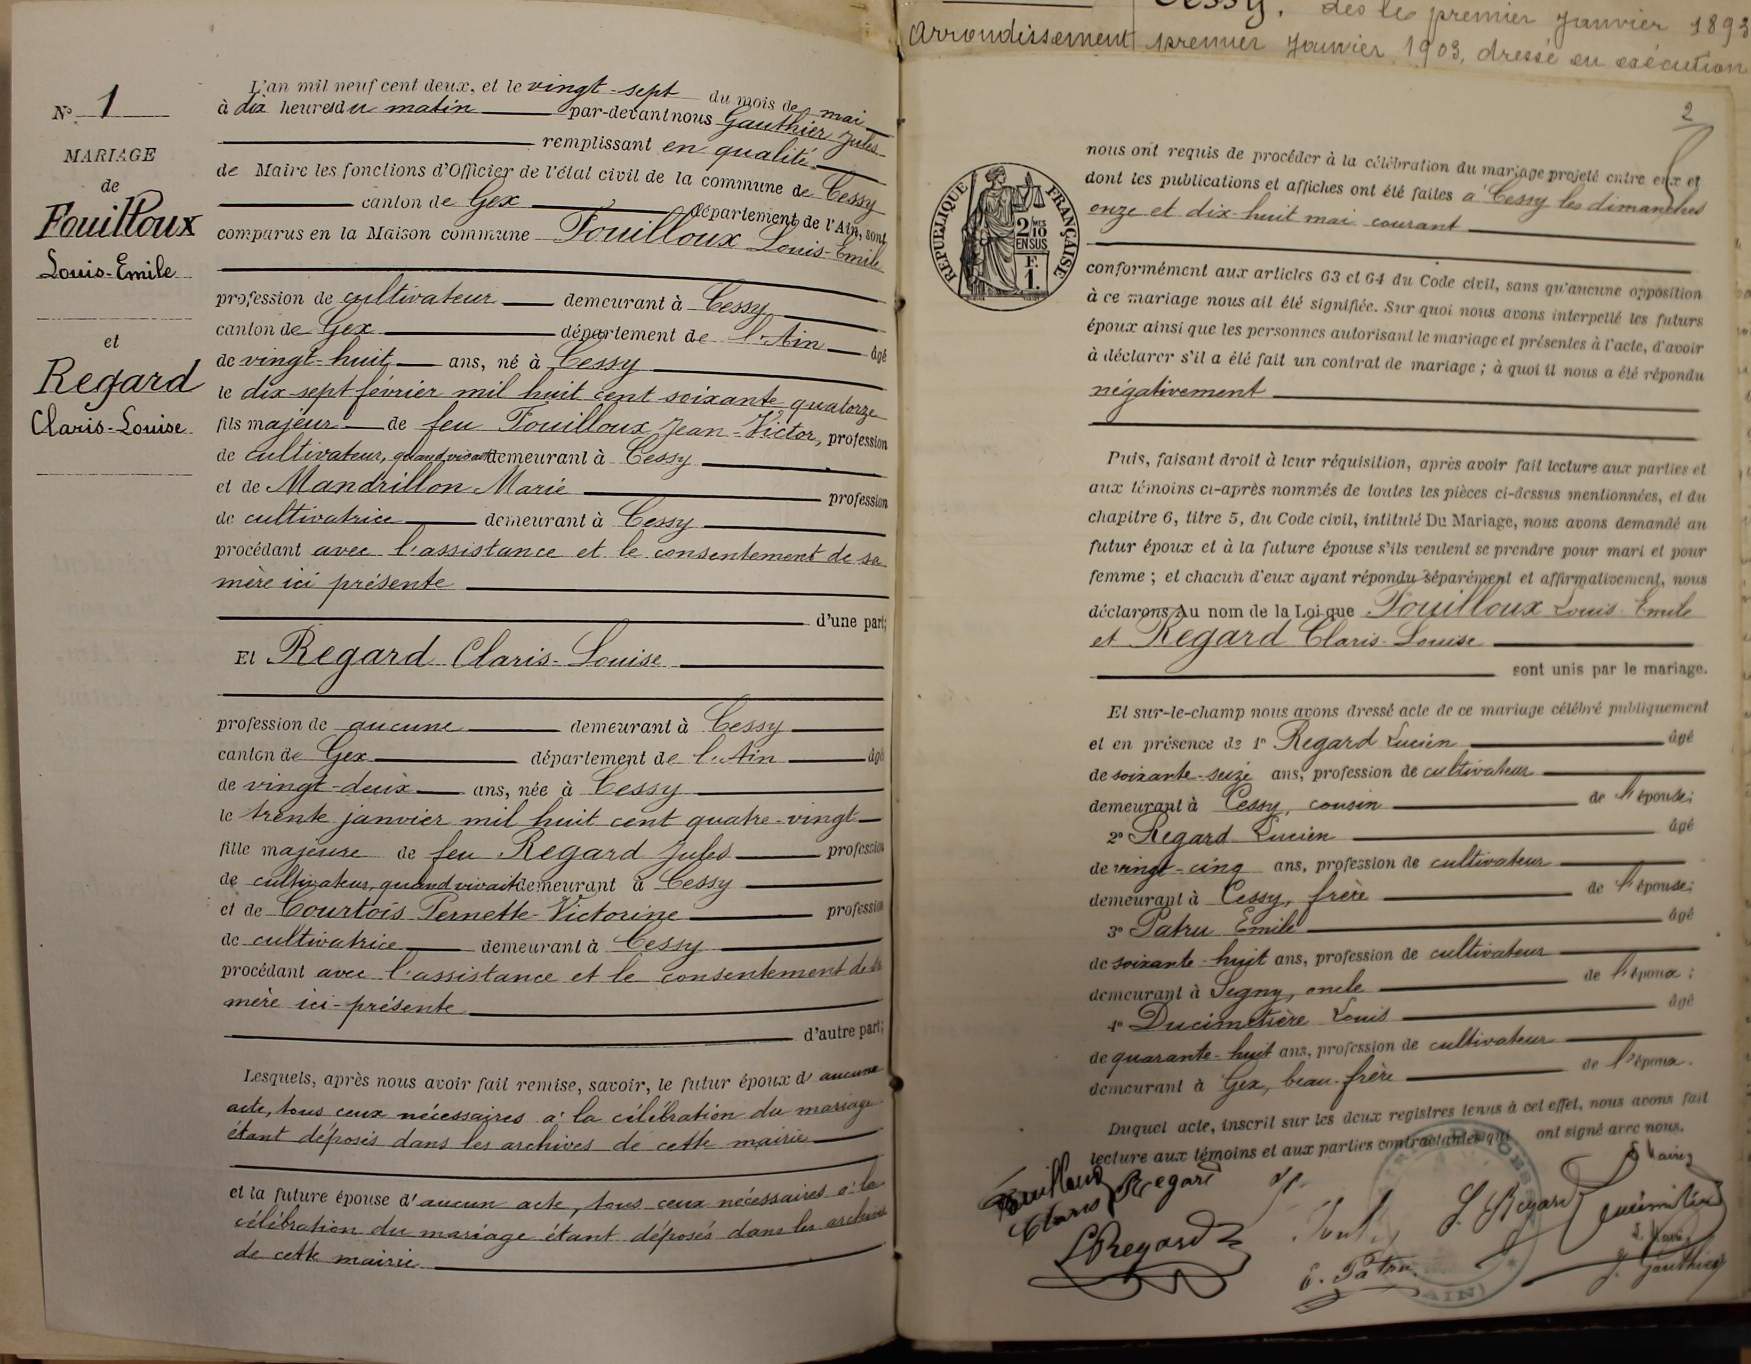 N° 1
MARIAGE
de
Fouilloux
Louis-Emile
et
Regard
Claris-Louise
L'an mil neuf cent deux, et le vingt-sept du mois de mai
à dix heures du matin par-devant nous Gauthier Jules
remplissant en qualité
de Maire les fonctions d'Officier de l'état civil de la commune de Cessy
canton de Gex département de l'Ain, sont
comparus en la Maison commune Fouilloux Louis-Emile
profession de cultivateur demeurant à Cessy
canton de Gex département de l'Ain âgé
de vingt-huit ans, né à Cessy
le dix-sept février mil huit cent soixante quatorze
fils majeur de feu Fouilloux Jean-Victor, profession
de cultivateur, quand vivait demeurant à Cessy
et de Mandrillon Marie profession
de cultivatrice demeurant à Cessy
procédant avec l'assistance et le consentement de sa
mère ici présente
d'une part;
Et Regard Claris-Louise
profession de aucune demeurant à Cessy
canton de Gex département de l'Ain âgé
de vingt-deux ans, née à Cessy
le trente janvier mil huit cent quatre-vingt
fille majeure de feu Regard Jules profession
de cultivateur, quand vivait demeurant à Cessy
et de Courtois Pernette-Victorine profession
de cultivatrice demeurant à Cessy
procédant avec l'assistance et le consentement de sa
mère ici-présente
d'autre part;
Lesquels, après nous avoir fait remise, savoir, le futur époux d'aucune
acte, tous ceux nécessaires à la célébration du mariage
étant déposés dans les archives de cette mairie
et la future épouse d'aucun acte, tous ceux nécessaires à la
célébration du mariage étant déposés dans les archives
de cette mairie
Cessy, dès le premier janvier 1893
Arrondissement premier janvier 1903, dressé en exécution
2
RÉPUBLIQUE FRANÇAISE
2/10 EN SUS
F. 1.
nous ont requis de procéder à la célébration du mariage projeté entre eux et
dont les publications et affiches ont été faites à Cessy les dimanches
onze et dix-huit mai courant
conformément aux articles 63 et 64 du Code civil, sans qu'aucune opposition
à ce mariage nous ait été signifiée. Sur quoi nous avons interpellé les futurs
époux ainsi que les personnes autorisant le mariage et présentes à l'acte, d'avoir
à déclarer s'il a été fait un contrat de mariage; à quoi il nous a été répondu
négativement
Puis, faisant droit à leur réquisition, après avoir fait lecture aux parties et
aux témoins ci-après nommés de toutes les pièces ci-dessus mentionnées, et du
chapitre 6, titre 5, du Code civil, intitulé Du Mariage, nous avons demandé au
futur époux et à la future épouse s'ils veulent se prendre pour mari et pour
femme; et chacun d'eux ayant répondu séparément et affirmativement, nous
déclarons Au nom de la Loi que Fouilloux Louis Emile
et Regard Claris-Louise
sont unis par le mariage.
Et sur-le-champ nous avons dressé acte de ce mariage célébré publiquement
et en présence de 1° Regard Lucien âgé
de soixante-seize ans, profession de cultivateur
demeurant à Cessy, cousin de l'épouse;
2° Regard Lucien âgé
de vingt-cinq ans, profession de cultivateur
demeurant à Cessy, frère de l'épouse;
3° Patru Emile âgé
de soixante-huit ans, profession de cultivateur
demeurant à Segny, oncle de l'époux;
4° Ducimetière Louis âgé
de quarante-huit ans, profession de cultivateur
demeurant à Gex, beau-frère de l'époux.
Duquel acte, inscrit sur les deux registres tenus à cet effet, nous avons fait
lecture aux témoins et aux parties contractantes qui ont signé avec nous.
Fouilloux
Claris Regard
L Regard
E. Patru
L. Regard
Ducimetière
J. Gauthier
(AIN)